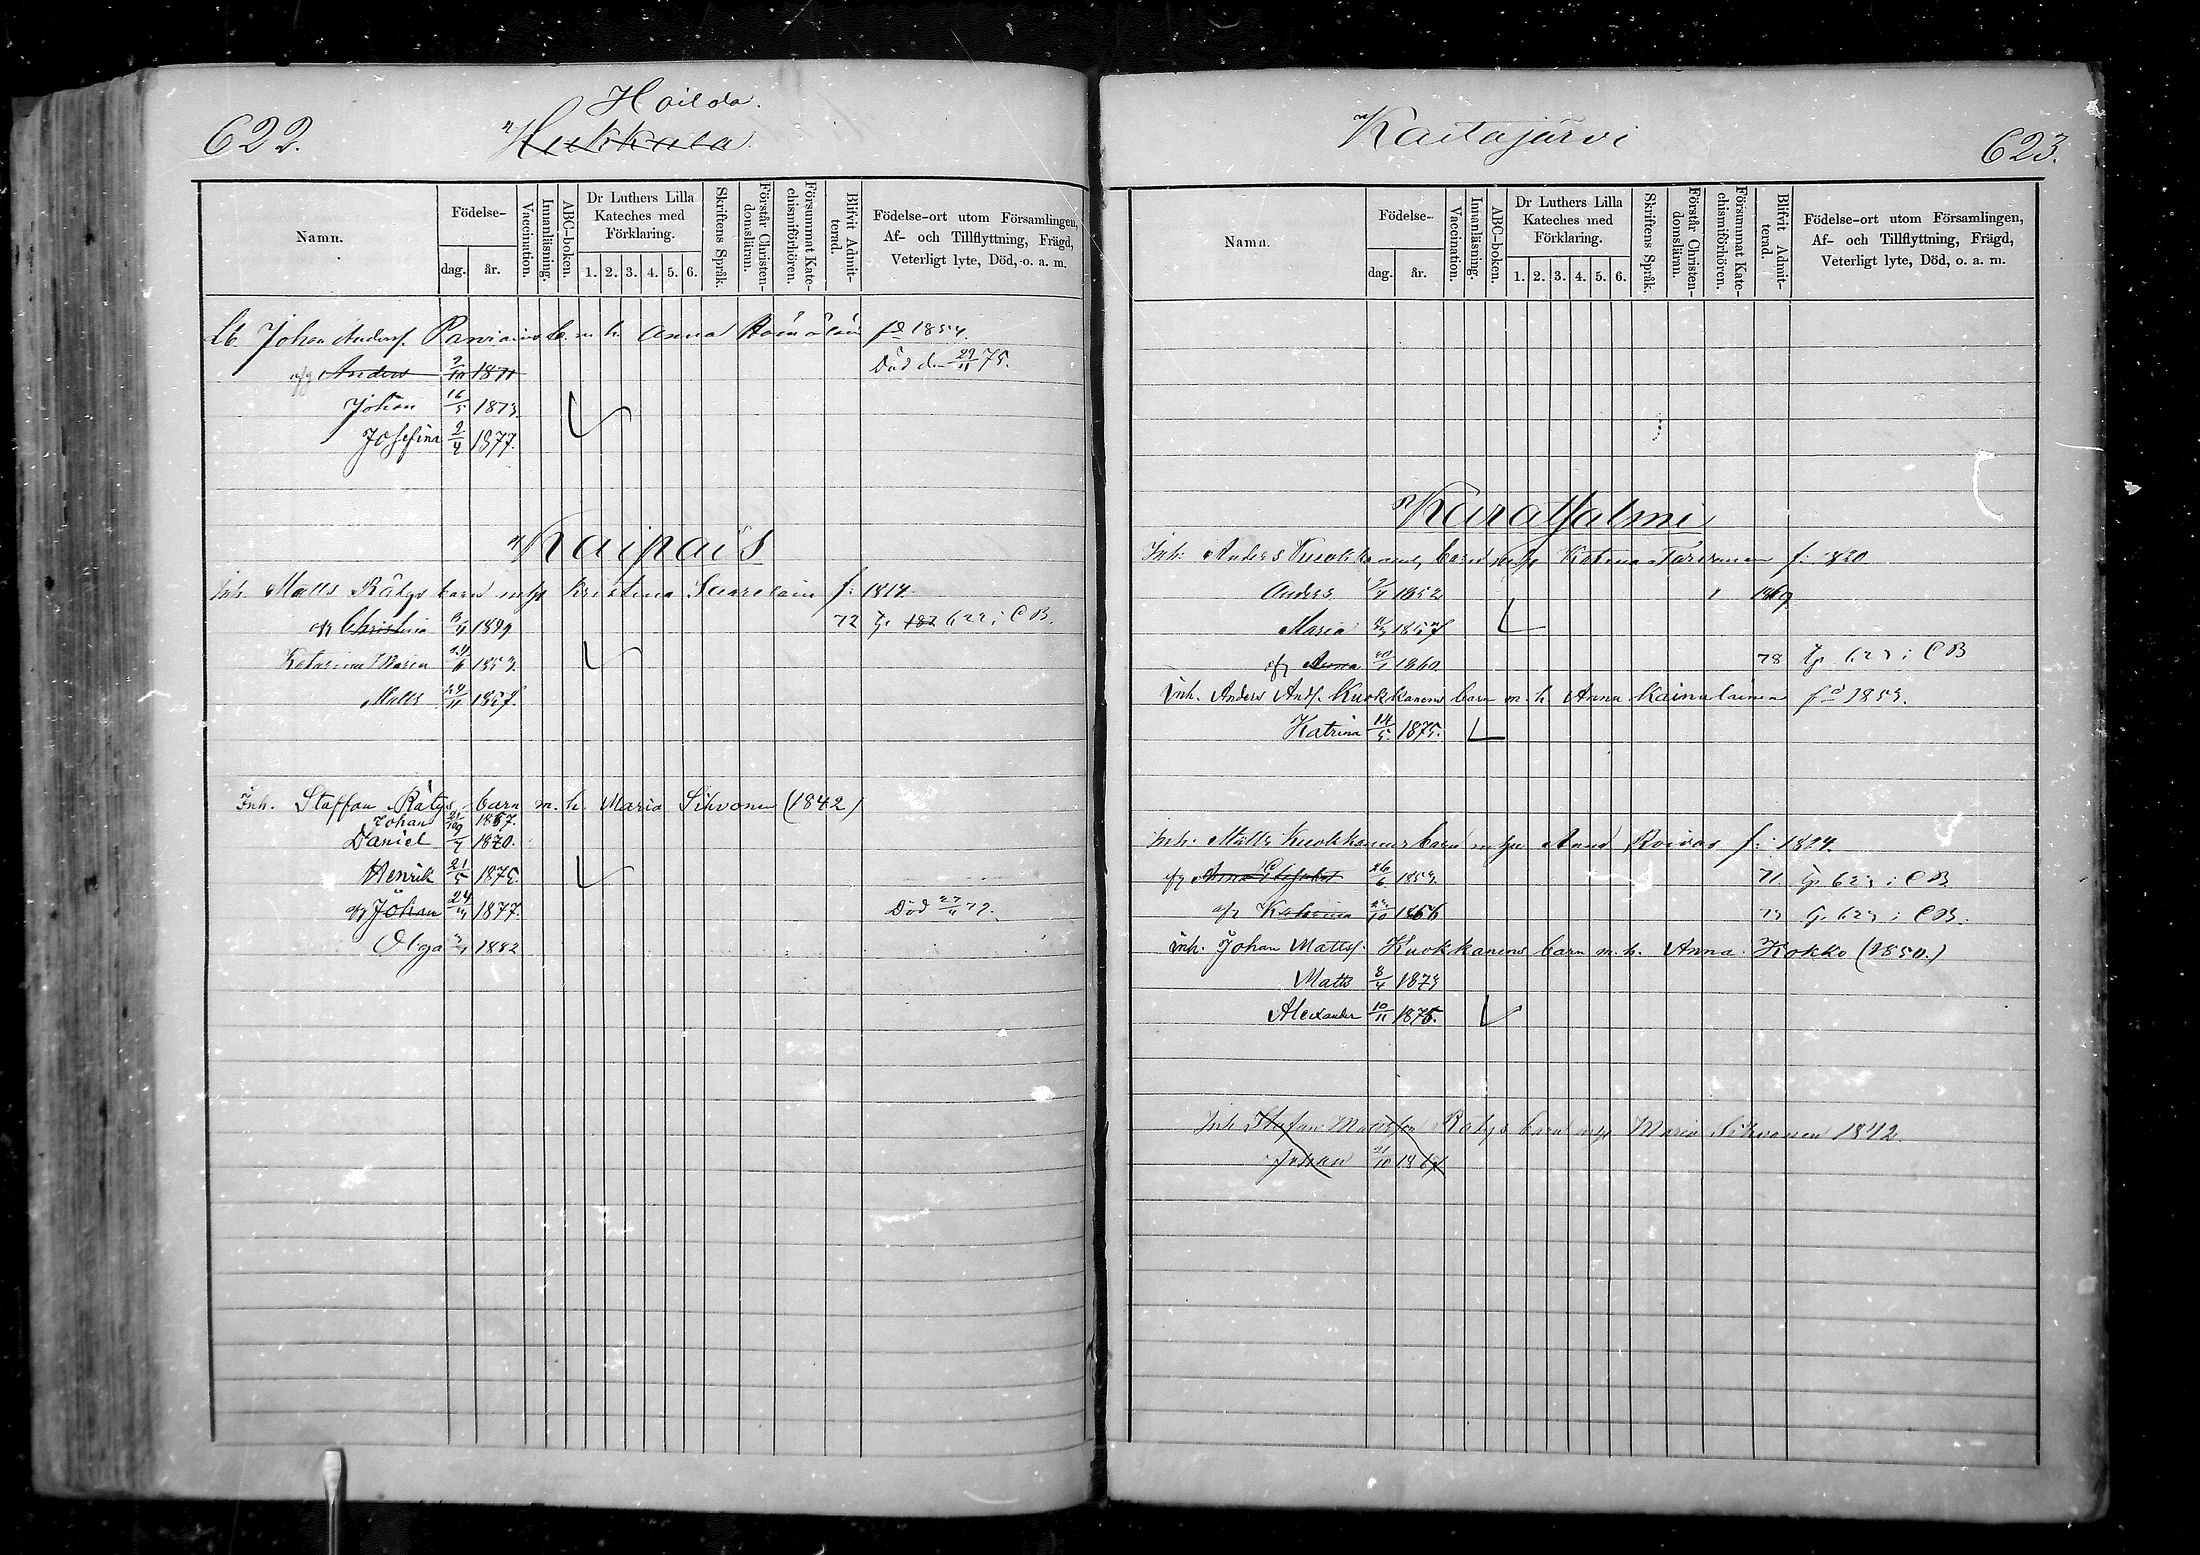 622.
Hoilola.
Hukkala.
Namn.
Födelse-
dag.
år.
Vaccination.
Innanläsning.
ABC-boken.
Dr Luthers Lilla Kateches med Förklaring.
1. 2. 3. 4. 5. 6.
Skriftens Språk.
Förstår Christendomsläran.
Försummat Katechismiförhören.
Blifvit Admitterad.
Födelse-ort utom Församlingen,
Af- och Tillflyttning, Frägd,
Veterligt lyte, Död, o. a. m.
Johan Anders. b. m. h. Anna fd 1854.
Anders 1871 Död den 29/11 75.
Johan 16/5 1873
Josefina 2/4 1877.
Kaipais
Inh. Matts Rätys barn m h Kristina f: 1814.
Christina 1849 72 622 i CB.
Katarina Maria 1853.
Matts 1857.
Inh. Staffan Rätys barn m. h. Maria Sihvonen (1842)
Johan 21/10 1867.
Daniel 1870.
Henrik 21/5 1875.
Johan 24/4 1877. Död
Olga 1882
Kaitajärvi
623.
Namn.
Födelse-
dag.
år.
Vaccination.
Innanläsning.
ABC-boken.
Dr Luthers Lilla Kateches med Förklaring.
1. 2. 3. 4. 5. 6.
Skriftens Språk.
Förstår Christendomsläran.
Försummat Katechismiförhören.
Blifvit Admitterad.
Födelse-ort utom Församlingen,
Af- och Tillflyttning, Frägd,
Veterligt lyte, Död, o. a. m.
Inh: Anders Kuokkanens barn Katrina f: 1820
Anders 1852 1869
Maria 1857
Anna 1860 78 623 i CB
Inh. Anders And. Kuokkanens barn m. h. Anna Kainulainen fd 1853.
Katrina 14/5 1875.
Inh. Matts Kuokkanens barn Anna Roivas f: 1824.
26/6 1853. 71 623 i CB
Katrina 1856 73 623 i CB.
Inh. Johan Matts. Kuokkanens barn m. h. Anna Kokko (1850.)
Matts 8/4 1873
Alexander 10/11 1875.
Inh Stefan Rätys barn Maria Sihvonen 1842
Johan 21/10 1867